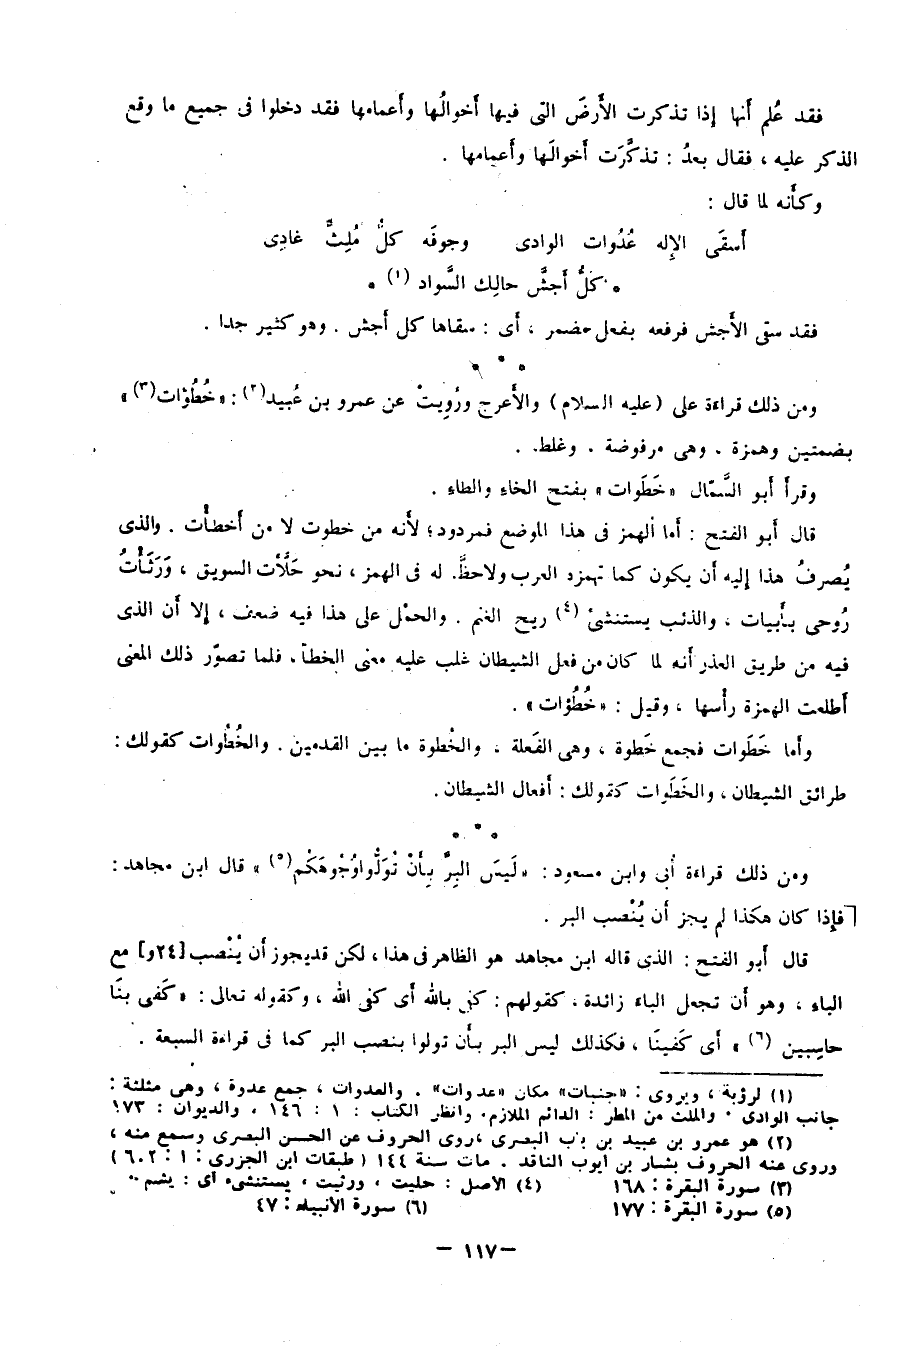 فقد عُلم أنها إذا تذكرت الأرضَ التى فيها أخوالُها وأعمامها فقد دخلوا فى جميع ما وقع
الذكر عليه ، فقال بعدُ : تذكَّرَت أخوالَها وأعمامها .
وكأنه لما قال :
أسقَى الإله عُدُوات الوادى وجوفَه كلُّ مُلِثٍّ غادِى
* كلُّ أجشَّ حالِك السَّواد (١) *
فقد سقى الأجش فرفعه بفعل مضمر ، أى : سقاها كل أجش . وهو كثير جدا .
* * *
ومن ذلك قراءة على (عليه السلام) والأعرج ورُوِيتْ عن عمرو بن عُبيد(٢) : «خُطُؤات(٣)»
بضمتين وهمزة . وهى مرفوضة . وغلط .
وقرأ أبو السَّمّال «خَطَوات» بفتح الخاء والطاء .
قال أبو الفتح : أما الهمز فى هذا الموضع فمردود؛ لأنه من خطوت لا من أخطأت . والذى
يُصرفُ هذا إليه أن يكون كما تهمزه العرب ولاحظَّ له فى الهمز ، نحو حَلَّأْت السويق ، وَرَثَأْتُ
رُوحى بأبيات ، والذئب يستنشئ (٤) ريح الغنم . والحمْل على هذا فيه ضعف ، إلا أن الذى
فيه من طريق العذر أنه لما كان من فعل الشيطان غلب عليه معنى الخطأ ، فلما تصوّر ذلك المعنى
أطلعت الهمزة رأسها ، وقيل : «خُطُؤات» .
وأما خَطَوات فجمع خَطوة ، وهى الفَعلة . والخُطوة ما بين القدمين . والخُطُوات كقولك :
طرائق الشيطان ، والخَطَوات كقولك : أفعال الشيطان .
* * *
ومن ذلك قراءة أُبى وابن مسعود : «لَيسَ البِرَّ بِأَنْ تُوَلُّوا وُجُوهَكُم(٥)» قال ابن مجاهد :
فإذا كان هكذا لم يجز أن يُنْصب البر .
قال أبو الفتح : الذى قاله ابن مجاهد هو الظاهر فى هذا ، لكن قد يجوز أن يُنْصب [٢٤و] مع
الباء ، وهو أن تجعل الباء زائدة ، كقولهم : كفى بالله أى كفى الله ، وكقوله تعالى : «كَفى بنَا
حاسِبين (٦)» أى كَفينَا ، فكذلك ليس البر بأن تولوا بنصب البر كما فى قراءة السبعة .
(١) لرؤبة ، ويروى : «جنبات» مكان «عدوات» . والعدوات ، جمع عدوة ، وهى مثلثة :
جانب الوادى . والملث من المطر : الدائم الملازم . وانظر الكتاب : ١ : ١٤٦ ، والديوان : ١٧٣
(٢) هو عمرو بن عبيد بن باب البصرى ، روى الحروف عن الحسن البصرى وسمع منه ،
وروى عنه الحروف بشار بن ايوب الناقد . مات سنة ١٤٤ ( طبقات ابن الجزرى : ١ : ٦٠٢ )
(٣) سورة البقرة : ١٦٨ (٤) الأصل : حليت ، ورثيت ، يستنشى ، اى : يشم .
(٥) سورة البقرة : ١٧٧ (٦) سورة الأنبياء : ٤٧
— ١١٧ —